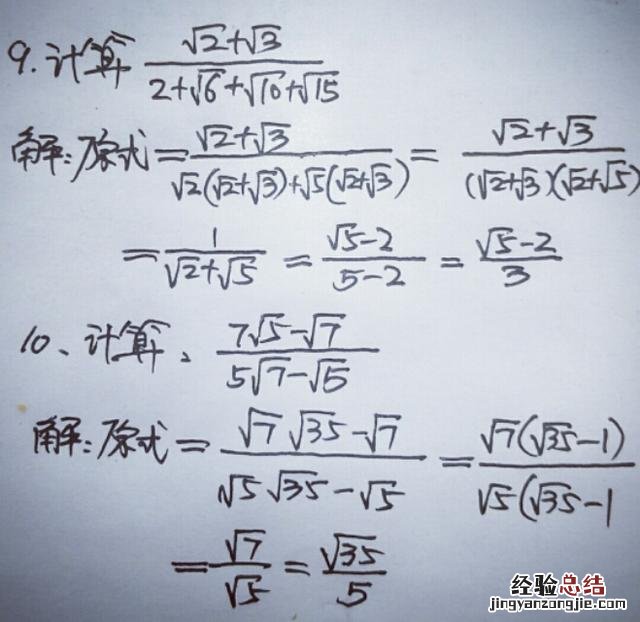 9. 计算 (√2+√3)/(2+√6+√10+√15)
解:原式=(√2+√3)/(√2(√2+√3)+√5(√2+√3))=(√2+√3)/((√2+√3)(√2+√5)
=1/(√2+√5)=(√5-2)/(5-2)=(√5-2)/3
10、计算、(7√5-√7)/(5√7-√5)
解:原式=(√7√35-√7)/(√5√35-√5)=(√7(√35-1))/(√5(√35-1
=√7/√5=√35/5
经验总结
jingyanzongjie.com